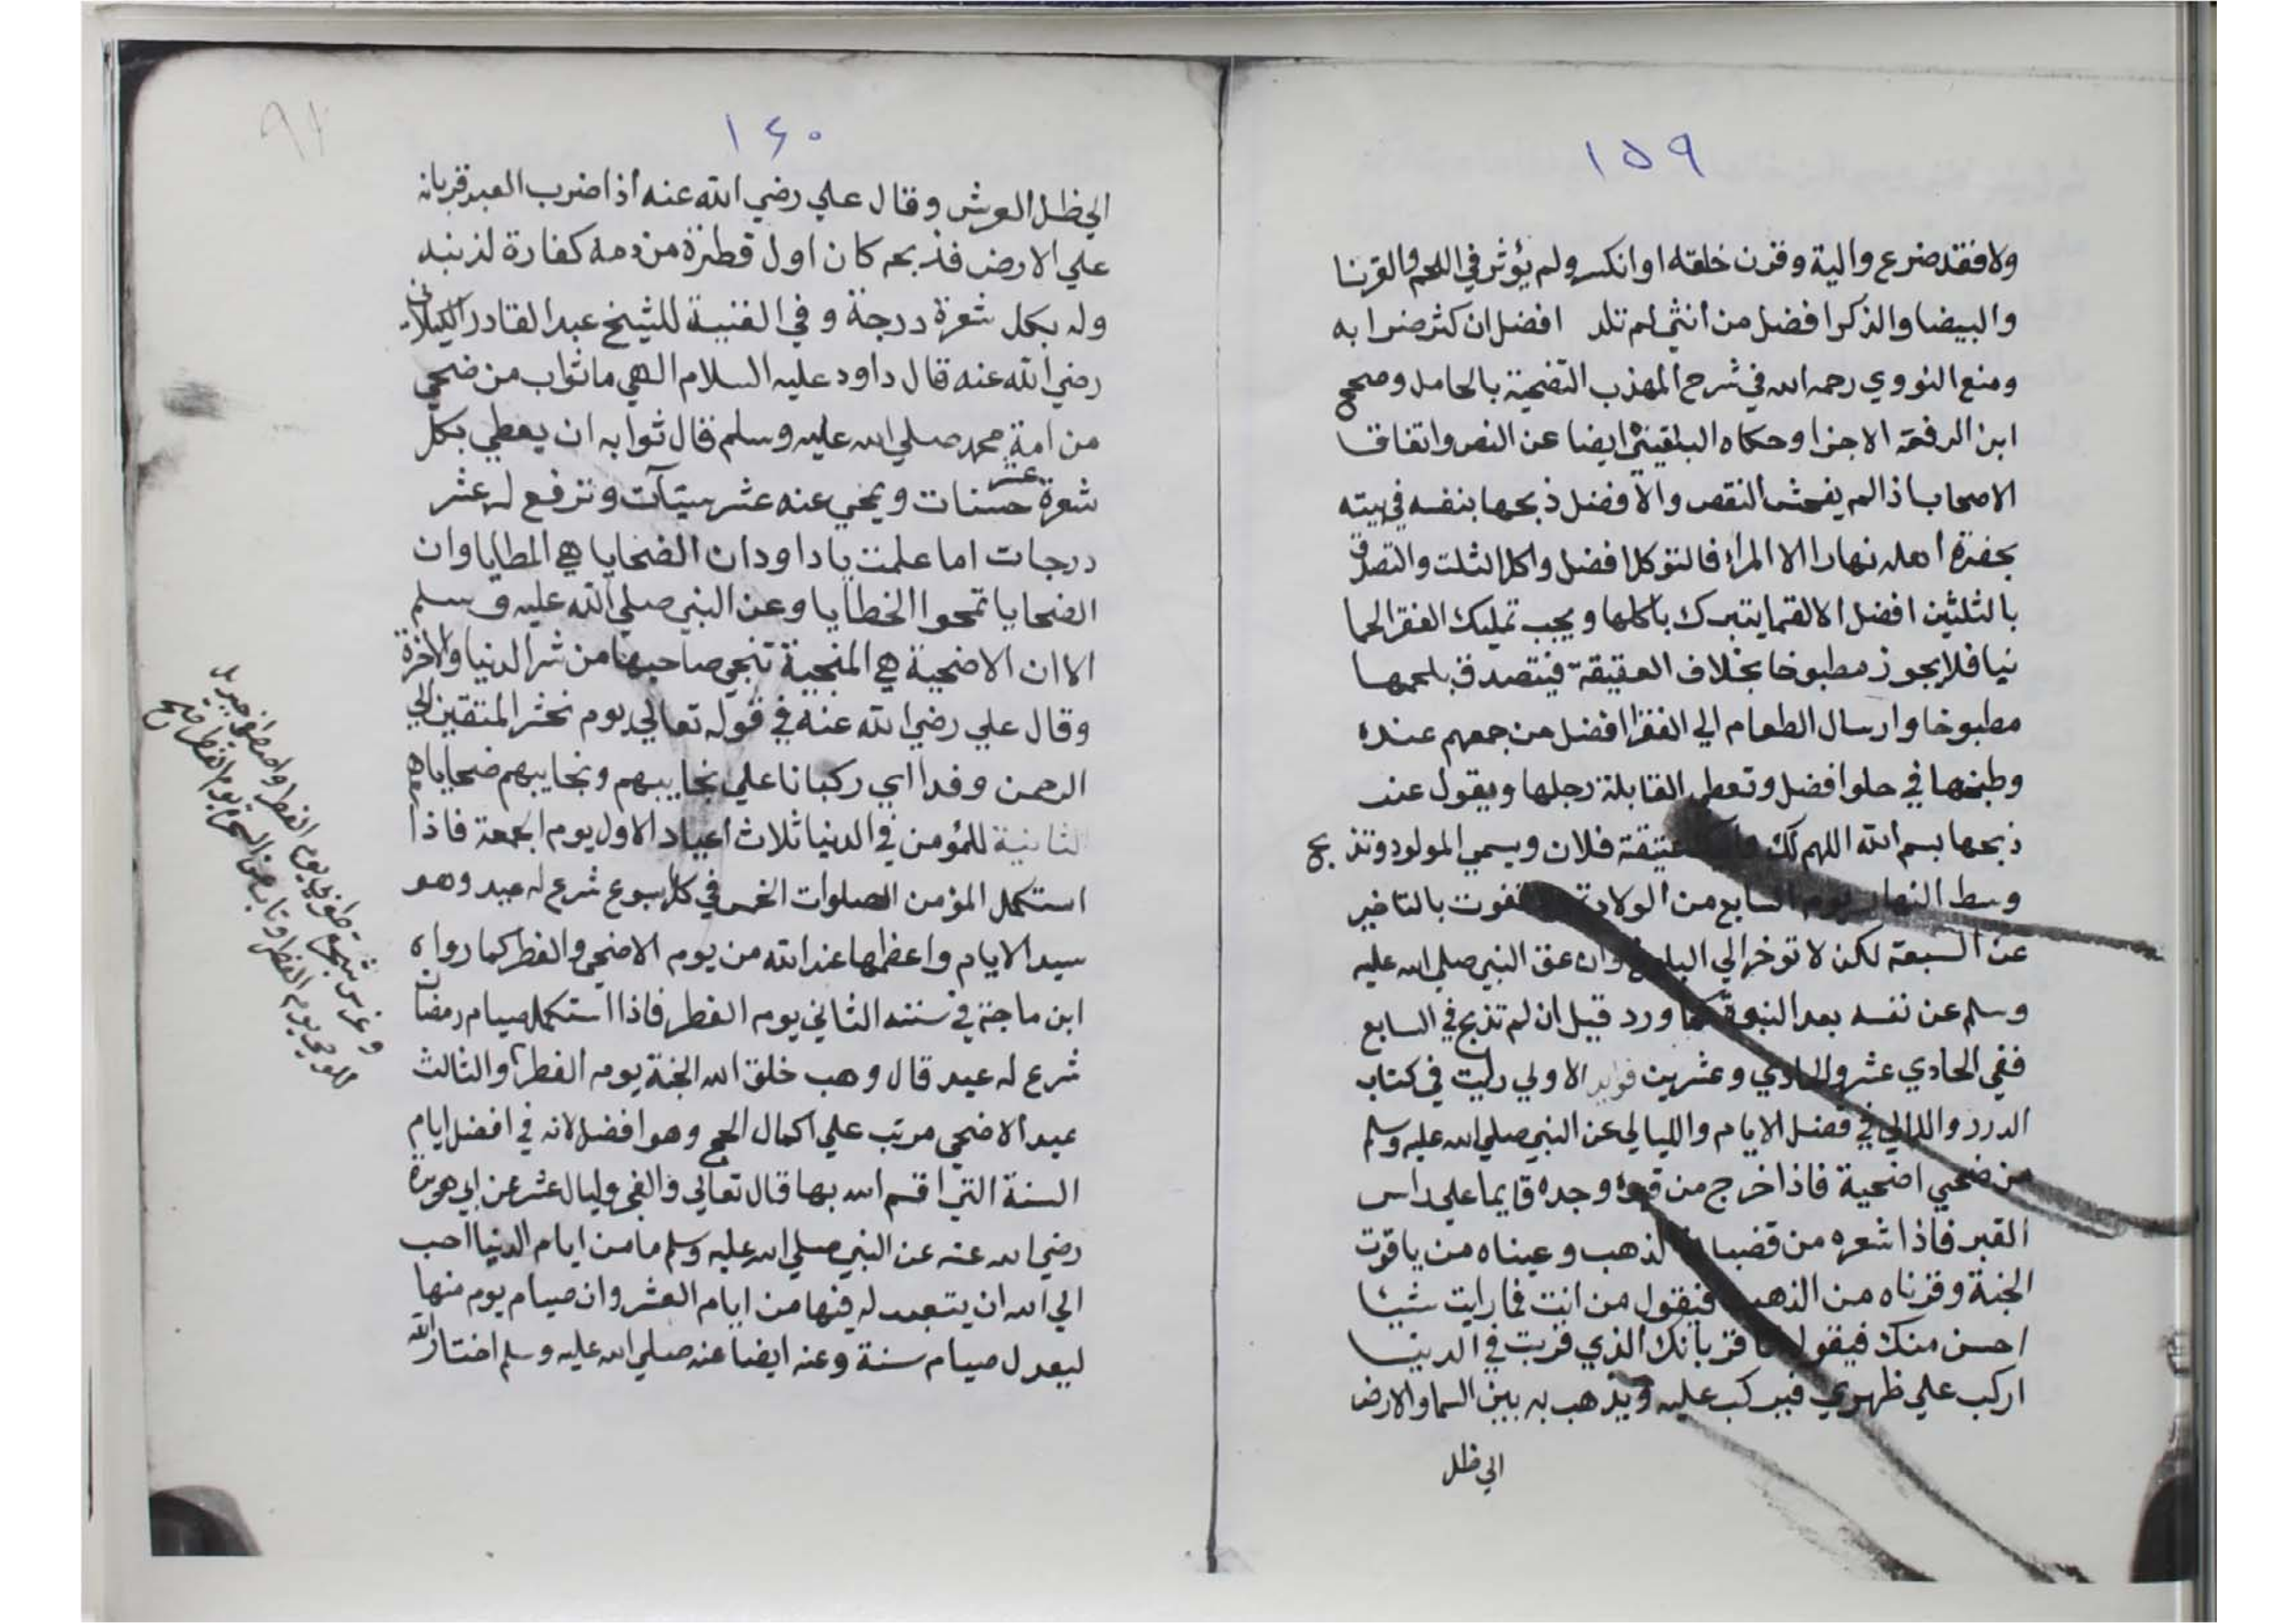 ١٥٩
ولا فقد ضرع والية وقرن خلقه او انكسر ولم يؤثر في اللحم والقرنا
والبيضا والذكر افضل من أنثي لم تلد افضل ان كثر ضرابه
ومنع النووي رحمه الله في شرح المهذب التضحية بالحامل وصحح
ابن الرفعة الاجزا وحكاه البلقيني ايضا عن النص واتفاق
الاصحاب اذا لم يفحش النقص والافضل ذبحها بنفسه في بيته
بحضرة أهله نهارا الا المراة فالتوكل افضل واكل الثلث والتصدق
بالثلثين افضل الا لقما يتبرك باكلها ويجب تمليك الفقرا لحما
نيا فلا يجوز مطبوخا بخلاف العقيقة فيتصدق بلحمها
مطبوخا وارسال الطعام الي الفقرا افضل من جمعهم عنده
وطبخها في حلو افضل وتعطي القابلة رجلها ويقول عند
ذبحها بسم الله اللهم لك عقيقة فلان ويسمي المولود وتذبح
وسط النهار يوم السابع من الولادة تفوت بالتاخير
عن السبعة لكن لا توخر الي البلوغ وان عق النبي صلي الله عليه
وسلم عن نفسه بعد النبوة كما ورد قيل ان لم تذبح في السابع
ففي الحادي عشر والحادي وعشرين فوايد الاولي رايت في كتاب
الدرر واللالي في فضل الايام والليالي عن النبي صلي الله عليه وسلم
من ضحي اضحية فاذا خرج من قبره وجده قايما علي راس
القبر فاذا شعره من قضبان الذهب وعيناه من ياقوت
الجنة وقرناه من الذهب فيقول من انت فما رايت شيئا
احسن منك فيقول انا قربانك الذي قربت في الدنيا
اركب علي ظهري فيركب عليه ويذهب به بين السما والارض
الي ظل
١٦٠
الي ظل العرش وقال علي رضي الله عنه أذا ضرب العبد قربانه
علي الارض فذبحه كان اول قطرة من دمه كفارة لذنبه
وله بكل شعرة درجة وفي الغنية للشيخ عبد القادر الكيلاني
رضي الله عنه قال داود عليه السلام الهي ما ثواب من ضحي
من امة محمد صلي الله عليه وسلم قال ثوابه ان يعطي بكل
شعرة عشر حسنات ويمحي عنه عشر سيئآت وترفع له عشر
درجات اما علمت يا داود ان الضحايا هي المطايا وان
الضحايا تمحوا الخطايا وعن النبي صلي الله عليه وسلم
الا ان الاضحية هي المنجية تنجي صاحبها من شر الدنيا والاخرة
وقال علي رضي الله عنه في قوله تعالي يوم نحشر المتقين الي
الرحمن وفدا اي ركبانا علي نجايبهم ونجايبهم ضحاياهم
الثانية للمؤمن في الدنيا ثلاث اعياد الاول يوم الجمعة فاذا
استكمل المؤمن الصلوات الخمس في كل اسبوع شرع له عيد وهو
سيد الايام واعظمها عند الله من يوم الاضحي والفطر كما رواه
ابن ماجة في سننه الثاني يوم الفطر فاذا استكمل صيام رمضان
شرع له عيد قال وهب خلق الله الجنة يوم الفطر والثالث
عيد الاضحي مرتب علي اكمال الحج وهو افضل لانه في افضل ايام
السنة التي اقسم الله بها قال تعالي والفجر وليال عشر عن ابي هريرة
رضي الله عنه عن النبي صلي الله عليه وسلم ما من ايام الدنيا احب
الي الله ان يتعبد له فيها من ايام العشر وان صيام يوم منها
ليعدل صيام سنة وعنه ايضا عنه صلي الله عليه وسلم اختار الله
وغرس شجرة طوبي يوم الفطر واصطفي جبريل
للوحي يوم الفطر وتاب عن السحرة يوم الفطر صح